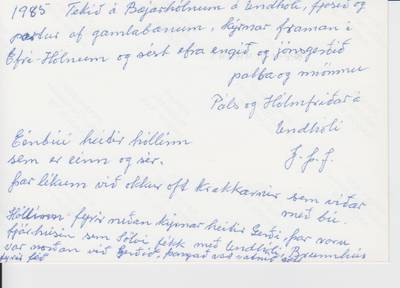 1985 Tekið á Bæjarhólnum á Undhóli, fjósið og
partur af gamlabænum, kýrnar framan í
Efri-Hólnum og sést efra engið og jónsgerðið
pabba og mömmu
Páls og Hólmfríðar á
Undhóli
Einbúi heitir hóllinn
sem er einn og sér.
H.J.J.
þar lékum við okkur oft krakkarnir sem víðar
með bú.
Hóllinn fyrir neðan kýrnar heitir Gerði, þar voru
fjárhúsin sem Sölvi fékk með Undhóli, Brunnhús
var norðan við Gerðið, þangað var vatnið sótt
fyrir féð